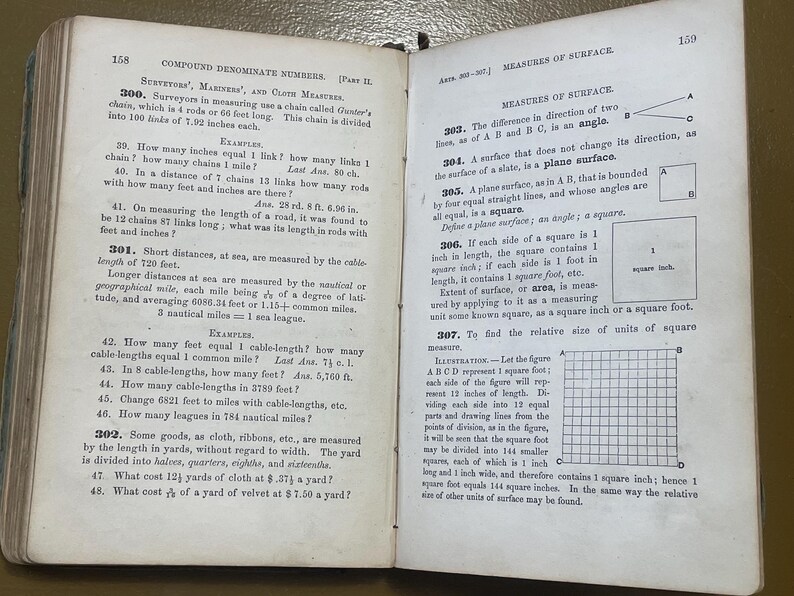 158 COMPOUND DENOMINATE NUMBERS. [PART II.
SURVEYORS', MARINERS', AND CLOTH MEASURES.
300. Surveyors in measuring use a chain called Gunter's
chain, which is 4 rods or 66 feet long. This chain is divided
into 100 links of 7.92 inches each.
EXAMPLES.
39. How many inches equal 1 link? how many links 1
chain? how many chains 1 mile? Last Ans. 80 ch.
40. In a distance of 7 chains 13 links how many rods
with how many feet and inches are there?
Ans. 28 rd. 8 ft. 6.96 in.
41. On measuring the length of a road, it was found to
be 12 chains 87 links long; what was its length in rods with
feet and inches?
301. Short distances, at sea, are measured by the cable-
length of 720 feet.
Longer distances at sea are measured by the nautical or
geographical mile, each mile being 1/60 of a degree of lati-
tude, and averaging 6086.34 feet or 1.15+ common miles.
3 nautical miles = 1 sea league.
EXAMPLES.
42. How many feet equal 1 cable-length? how many
cable-lengths equal 1 common mile? Last Ans. 7⅓ c. l.
43. In 8 cable-lengths, how many feet? Ans. 5,760 ft.
44. How many cable-lengths in 3789 feet?
45. Change 6821 feet to miles with cable-lengths, etc.
46. How many leagues in 784 nautical miles?
302. Some goods, as cloth, ribbons, etc., are measured
by the length in yards, without regard to width. The yard
is divided into halves, quarters, eighths, and sixteenths.
47. What cost 12½ yards of cloth at $ .37½ a yard?
48. What cost of a yard of velvet at $ 7.50 a yard?
ARTS. 303-307.] MEASURES OF SURFACE. 159
MEASURES OF SURFACE.
303. The difference in direction of two
lines, as of A B and B C, is an angle.
A
B
C
304. A surface that does not change its direction, as
the surface of a slate, is a plane surface.
305. A plane surface, as in A B, that is bounded
by four equal straight lines, and whose angles are
all equal, is a square.
A
B
Define a plane surface; an angle; a square.
306. If each side of a square is 1
inch in length, the square contains 1
square inch; if each side is 1 foot in
length, it contains 1 square foot, etc.
1
square inch.
Extent of surface, or area, is meas-
ured by applying to it as a measuring
unit some known square, as a square inch or a square foot.
307. To find the relative size of units of square
measure.
ILLUSTRATION. — Let the figure
A B C D represent 1 square foot;
each side of the figure will rep-
resent 12 inches of length. Di-
viding each side into 12 equal
parts and drawing lines from the
points of division, as in the figure,
it will be seen that the square foot
may be divided into 144 smaller
squares, each of which is 1 inch
long and 1 inch wide, and therefore contains 1 square inch; hence 1
square foot equals 144 square inches. In the same way the relative
size of other units of surface may be found.
A
B
C
D